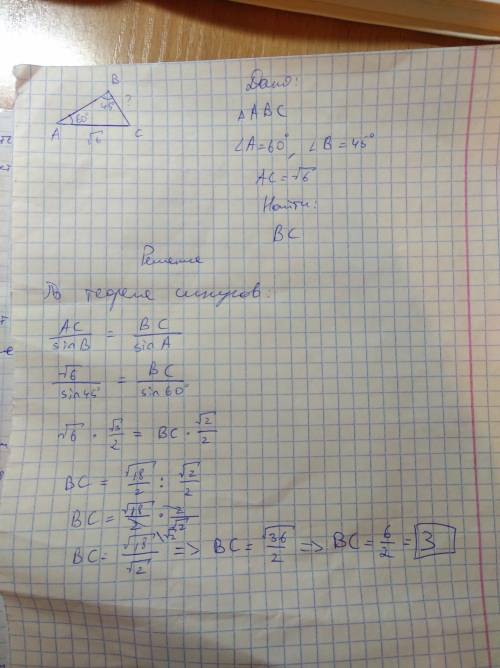 B
45°
?
60°
A
√6
C
Дано:
△ABC
∠A=60°, ∠B=45°
AC=√6
Найти:
BC
Решение
По теореме синусов:
AC/sinB = BC/sinA
√6/sin45° = BC/sin60°
√6 · √3/2 = BC · √2/2
BC = √18/2 : √2/2
BC = √18/2 · 2/√2
BC = √18/√2 \√2 => BC = √36/2 => BC = 6/2 = 3